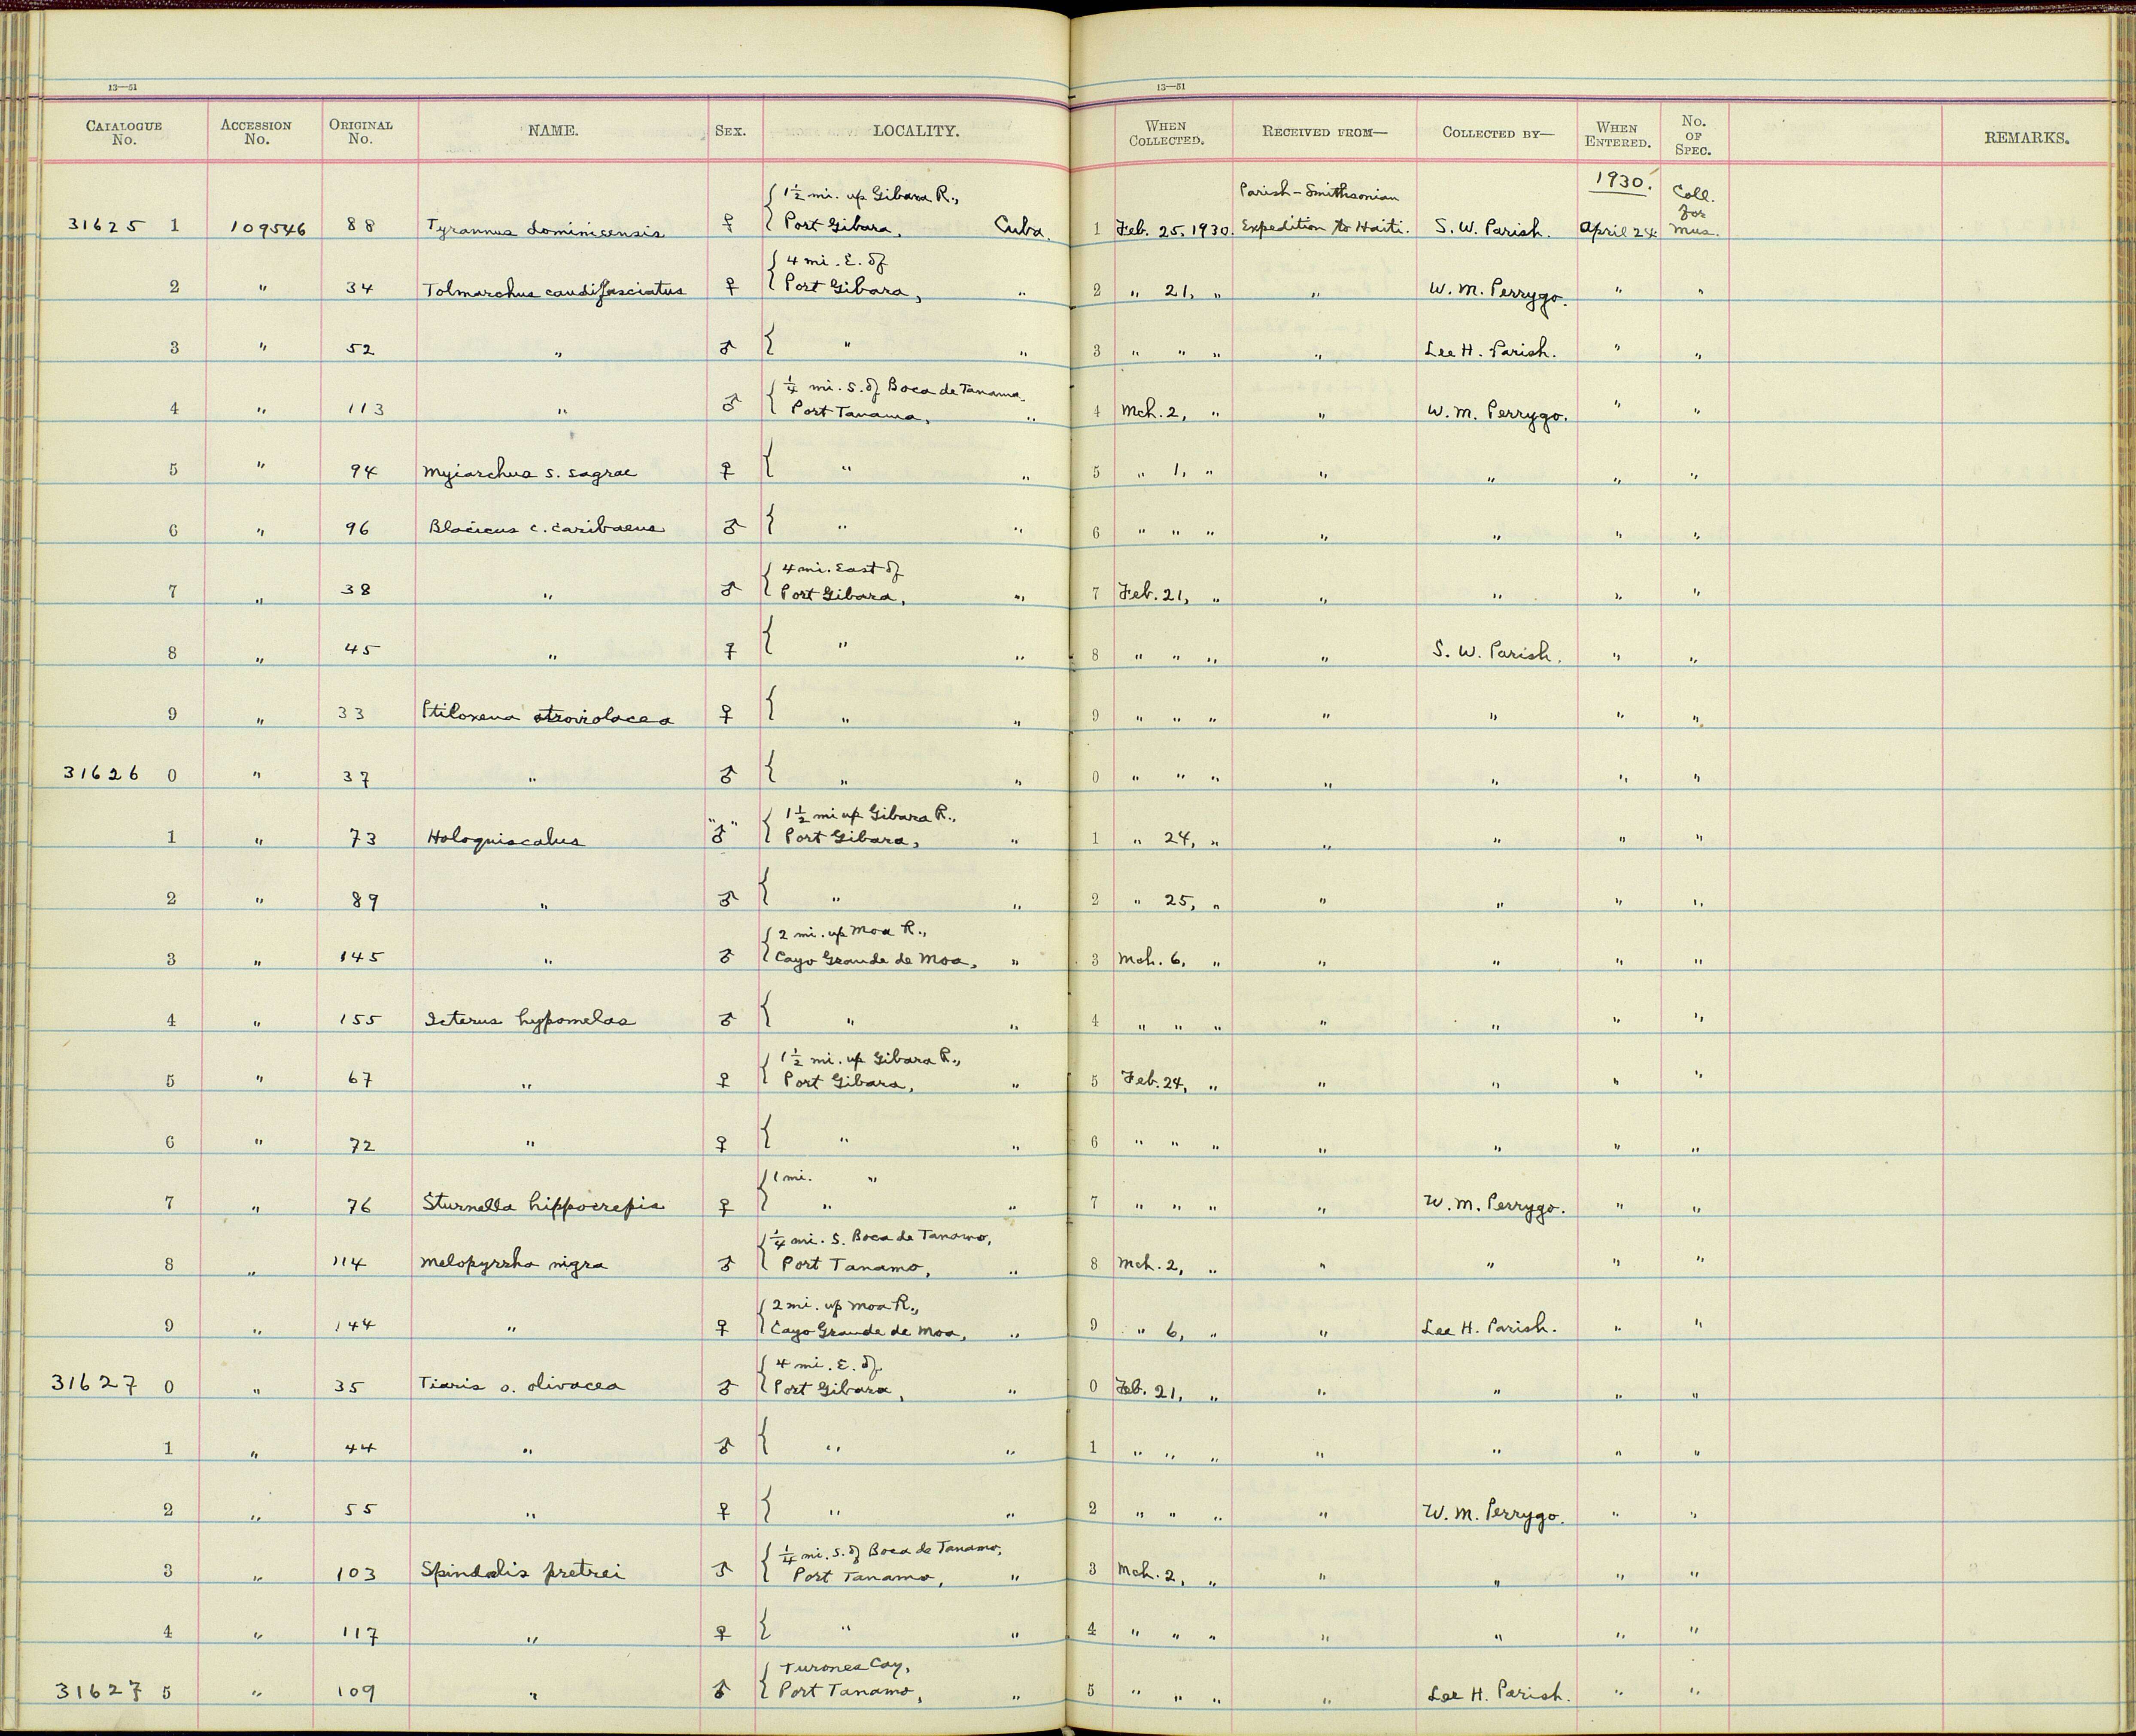 13—51
13—51
CATALOGUE No. ACCESSION No. ORIGINAL No. NAME. SEX. LOCALITY. WHEN COLLECTED. RECEIVED FROM— COLLECTED BY— WHEN ENTERED. No. OF SPEC. REMARKS.
1½ mi. up Gibara R., Parish-Smithsonian 1930. Coll. for
31625 1 109546 88 Tyrannus dominicensis ♀ Port Gibara, Cuba. 1 Feb. 25, 1930. Expedition to Haiti. S. W. Parish. April 24. Mus.
4 mi. E. of
2 " 34 Tolmarchus caudifasciatus ♀ Port Gibara, " 2 " 21, " " W. M. Perrygo. " "
3 " 52 " ♂ " " 3 " " " " Lee H. Parish. " "
¼ mi. S. of Boca de Tanama
4 " 113 " ♂ Port Tanama, " 4 Mch. 2, " " W. M. Perrygo. " "
5 " 94 Myiarchus s. sagrae ♀ " " 5 " 1, " " " " "
6 " 96 Blacicus c. caribaeus ♂ " " 6 " " " " " " "
4 mi. East of
7 " 38 " ♂ Port Gibara, " 7 Feb. 21, " " " " "
8 " 45 " ♀ " " 8 " " " " S. W. Parish. " "
9 " 33 Ptiloxena atroviolacea ♀ " " 9 " " " " " " "
31626 0 " 37 " ♂ " " 0 " " " " " " "
" " 1½ mi up Gibara R.,
1 " 73 Holoquiscalus ♂ Port Gibara, " 1 " 24, " " " " "
2 " 89 " ♂ " " 2 " 25, " " " " "
2 mi. up Moa R.,
3 " 145 " ♂ Cayo Grande de Moa, " 3 Mch. 6, " " " " "
4 " 155 Icterus hypomelas ♂ " " 4 " " " " " " "
1½ mi. up Gibara R.,
5 " 67 " ♀ Port Gibara, " 5 Feb. 24, " " " " "
6 " 72 " ♀ " " 6 " " " " " " "
1 mi. "
7 " 76 Sturnella hippocrepis ♀ " " 7 " " " " W. M. Perrygo. " "
¼ mi. S. Boca de Tanamo,
8 " 114 Melopyrrha nigra ♂ Port Tanamo, " 8 Mch. 2, " " " " "
2 mi. up Moa R.,
9 " 144 " ♀ Cayo Grande de Moa, " 9 " 6, " " Lee H. Parish. " "
4 mi. E. of
31627 0 " 35 Tiaris o. olivacea ♂ Port Gibara, " 0 Feb. 21, " " " " "
1 " 44 " ♂ " " 1 " " " " " " "
2 " 55 " ♀ " " 2 " " " " W. M. Perrygo. " "
¼ mi. S. of Boca de Tanamo,
3 " 103 Spindalis pretrei ♂ Port Tanamo, " 3 Mch. 2, " " " " "
4 " 117 " ♀ " " 4 " " " " " " "
Cay,
31627 5 " 109 " ♂ Port Tanamo, " 5 " " " " Lee H. Parish. " "